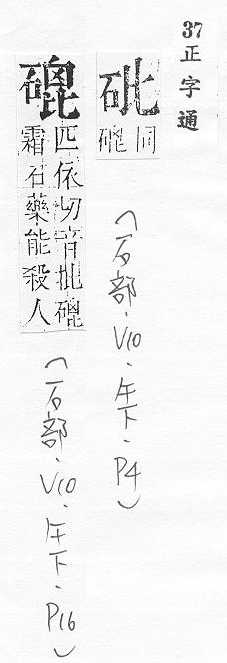 37正字通
砒
同䃀
(石部.V10.午下.P4)
䃀
匹依切音批䃀
霜石藥能殺人
(石部.V10.午下.P16)